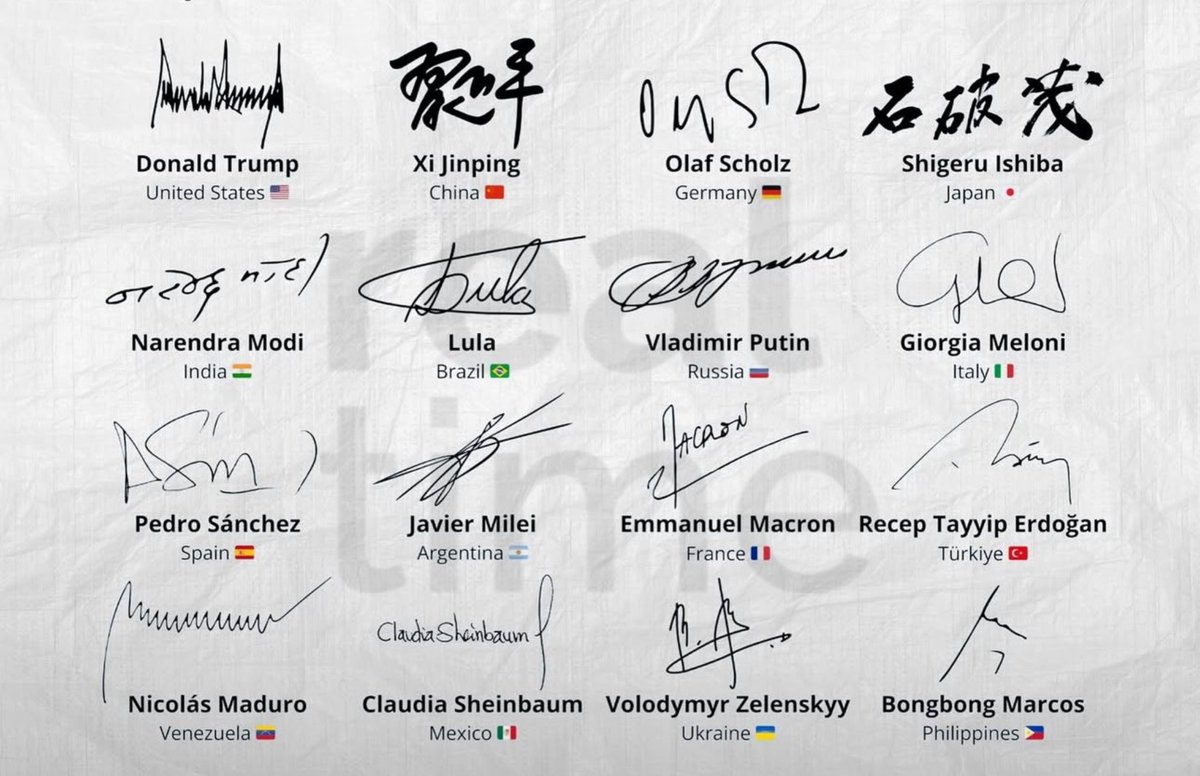 習近平 石破茂
Donald Trump Xi Jinping Olaf Scholz Shigeru Ishiba
United States China Germany Japan
Lula
Narendra Modi Lula Vladimir Putin Giorgia Meloni
India Brazil Russia Italy
MACRON
Pedro Sánchez Javier Milei Emmanuel Macron Recep Tayyip Erdoğan
Spain Argentina France Türkiye
Claudia Sheinbaum
Nicolás Maduro Claudia Sheinbaum Volodymyr Zelenskyy Bongbong Marcos
Venezuela Mexico Ukraine Philippines
real
time